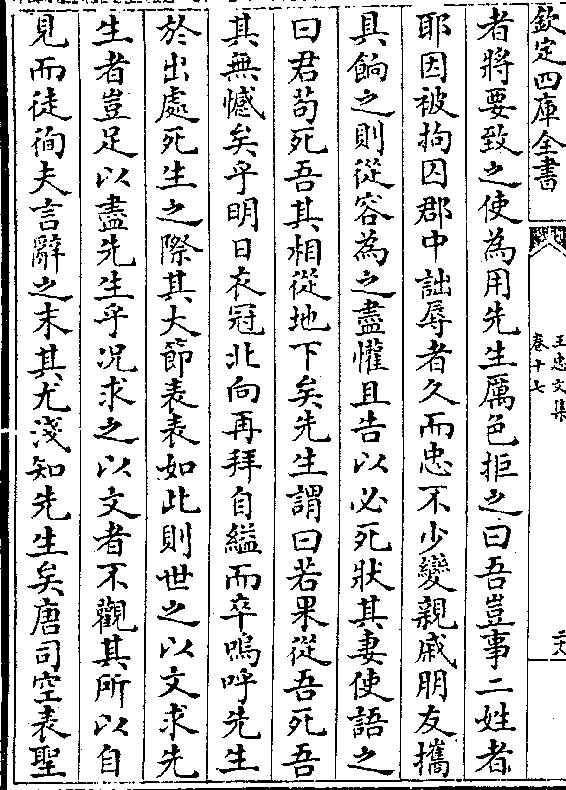 欽定四庫全書
王忠文集
卷十七
者將要致之使為用先生厲色拒之曰吾豈事二姓者
耶因被拘囚郡中詘辱者久而忠不少變親戚朋友攜
具餉之則從容為之盡懽且告以必死狀其妻使語之
曰君茍死吾其相從地下矣先生謂曰若果從吾死吾
其無憾矣乎明日衣冠北向再拜自縊而卒嗚呼先生
於出處死生之際其大節表表如此則世之以文求先
生者豈足以盡先生乎况求之以文者不觀其所以自
見而徒徇夫言辭之末其尤淺知先生矣唐司空表聖